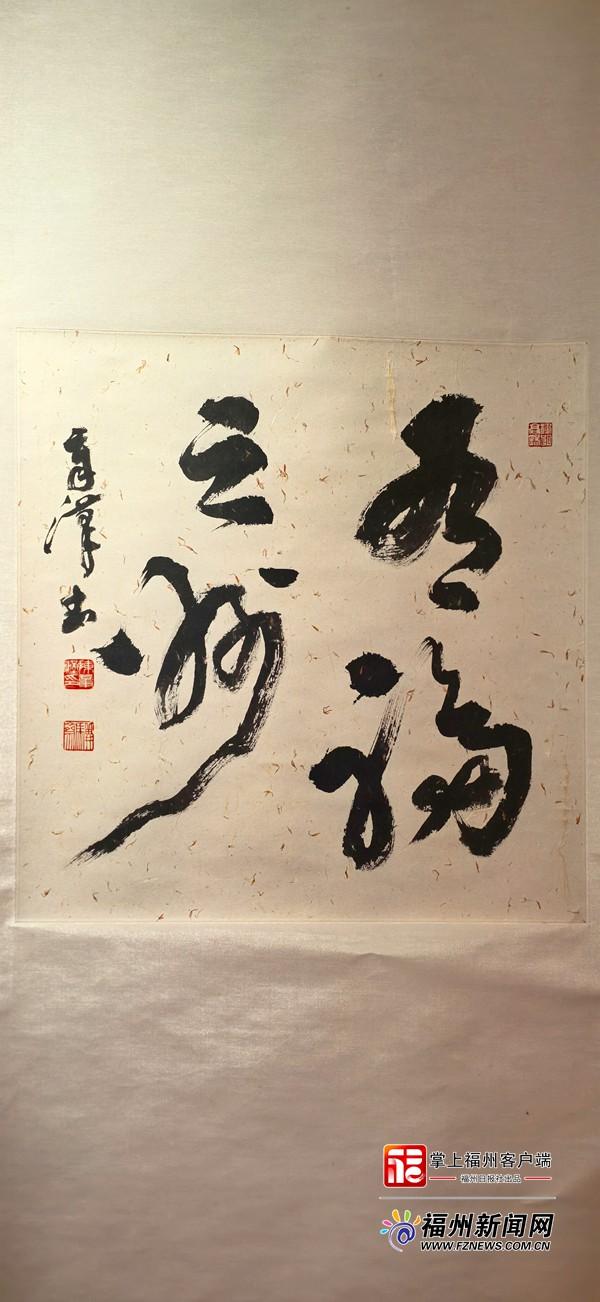 有福
之州
章漢书
掌上福州客户端
福州日报社出品
福州新闻网
WWW.FZNEWS.COM.CN